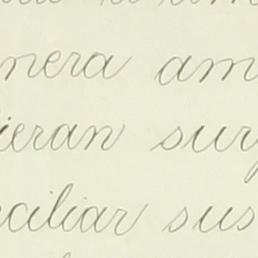 nera am
ieran sur
ciliar sus